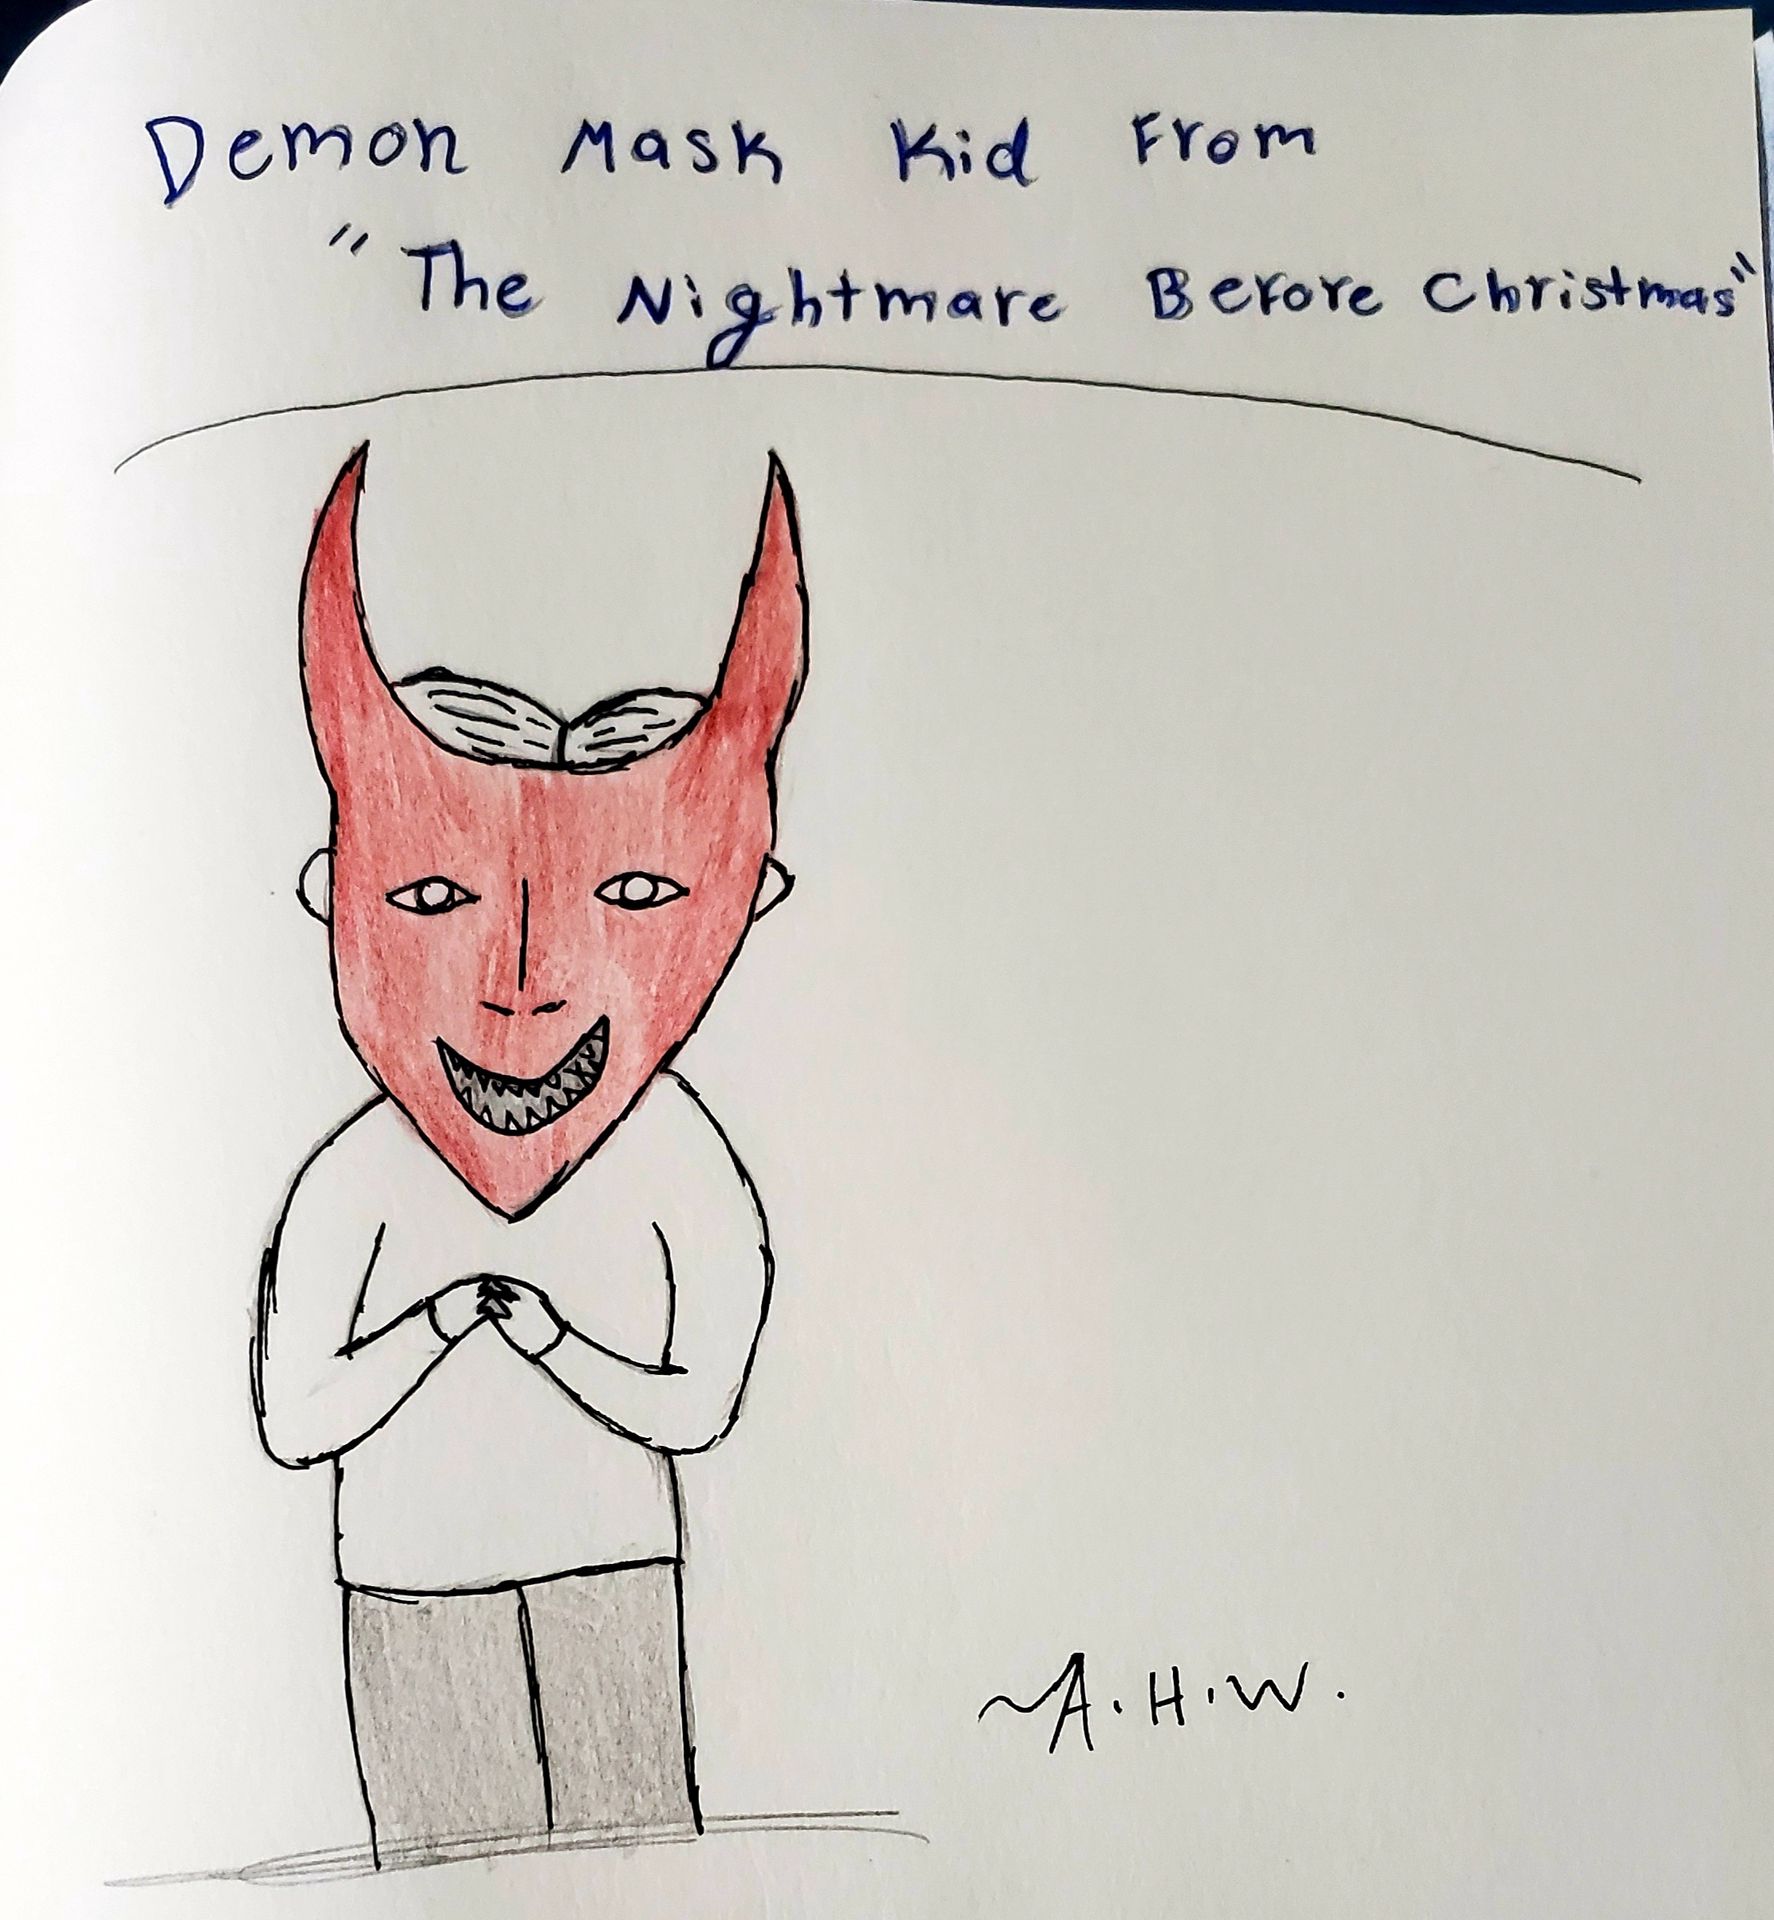 Demon Mask Kid From
"The Nightmare Before Christmas"
~A.H.W.